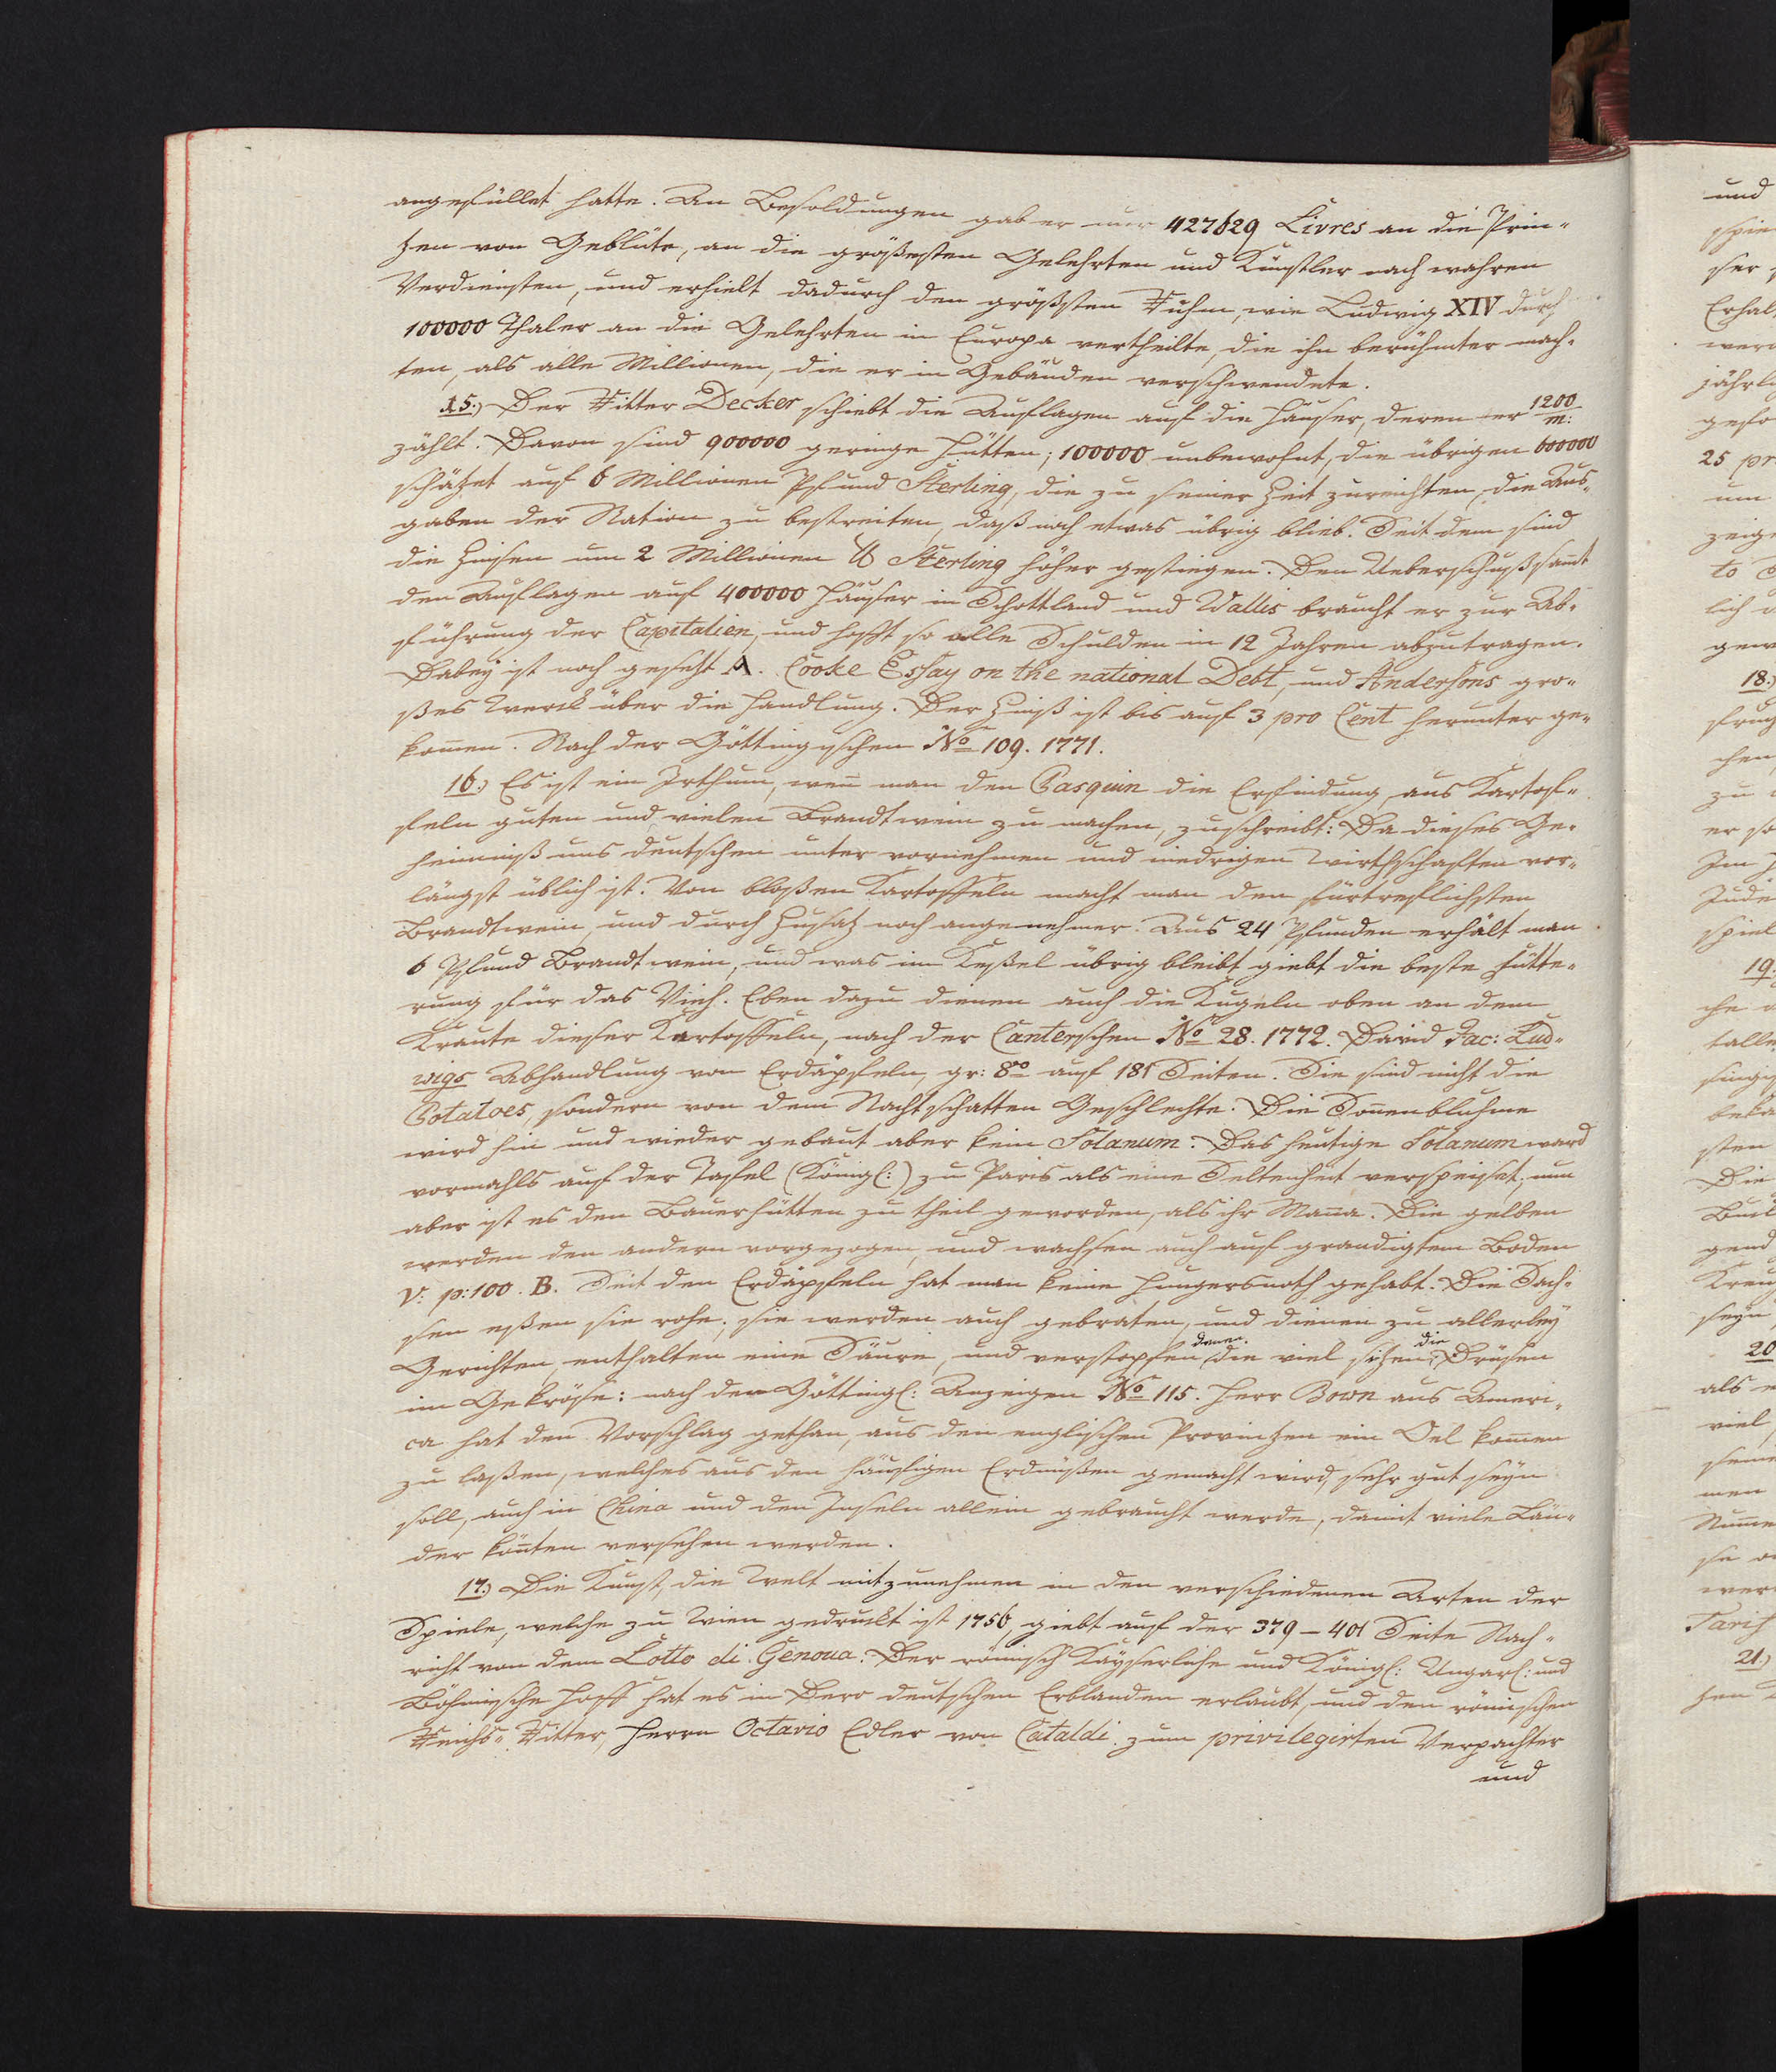 angefüllet hatte. An Besoldungen gab er nur 427629 Livres an die Prin-
zen von Geblüte, an die größesten Gelehrten und Künstler nach wahren
Verdiensten, und erhielt dadurch den größsten Ruhm, wie Ludwig XIV durch
100000 Thaler an die Gelehrten in Europa vertheilte, die ihn berühmter mach-
ten, als alle Millionen, die er in Gebäuden verschwendete.
15.) Der Ritter Decker schiebt die Auflagen auf die Häuser, deren er 1200/m:
zählt. Davon sind 900000 geringe Hütten; 100000 unbewohnt, die übrigen 600000
schätzet auf 6 Millionen Pfund Sterling, die zu seiner Zeit zureichten, die Aus-
gaben der Nation zu bestreiten, daß noch etwas übrig blieb. Seit dem sind
die Zinsen um 2 Millionen ℔ Sterling höher gestiegen. Den Ueberschuß samt
den Auflagen auf 400000 Häuser in Schottland und Wallis braucht er zur Ab-
führung der Capitalien, und hofft so alle Schulden in 12 Jahren abzutragen.
Dabey ist noch gesetzt A. Cooke Essay on the national Debt, und Andersons gro-
ßes Werck über die Handlung. Der Zinß ist bis auf 3 pro Cent herunter ge-
kom̄en. Nach der Göttingischen No 109. 1771.
16.) Es ist ein Irthum, wen̄ man den Pasquin die Erfindung, aus Kartof-
feln guten und vielen Brandtwein zu machen, zuschreibt: Da dieses Ge-
heimniß uns deutschen unter vornehmen und niedrigen Wirthschaften vor-
längst üblich ist. Von bloßen Kartoffeln macht man den fürtreflichsten
Brandtwein und durch Zusatz noch angenehmer. Aus 24 Pfunden erhält man
6 Pfund Brandtwein, und was im Keßel übrig bleibt giebt die beste Fütte-
rung für das Vieh. Eben dazu dienen auch die Kugeln oben an dem
Kraute dieser Kartoffeln, nach der Canterschen No 28. 1772. David Jac: Lud-
wigs Abhandlung von Erdäpfeln, gr: 8vo auf 181 Seiten. Sie sind nicht die
Potatoes, sondern von dem Nachtschatten Geschlechte. Die Son̄enbluhme
wird hin und wieder gebaut aber kein Solanum. Das heutige Solanum ward
vormahls auf der Tafel (Königl:) zu Paris als eine Seltenheit verspeiset, nun
aber ist es den Bauerhütten zu theil geworden, als ihr Man̄a. Die gelben
werden den andern vorgezogen, und wachsen auch auf grandigtem Boden
V: p: 100. B. Seit den Erdäpfeln hat man keine Hungersnoth gehabt. Die Sach-
sen eßen sie rohe, sie werden auch gebraten, und dienen zu allerley
Gerichten, enthalten eine Säure, und verstopfen denen, die viel sitzen, die Drüsen
im Gekröse: nach den Göttingl: Anzeigen No 115. Herr Bown aus Ameri-
ca hat den Vorschlag gethan, aus den englischen Provintzen ein Oel kom̄en
zu laßen, welches aus den häufigen Erdnüßen gemacht wird, sehr gut seyn
soll, auch in China und den Inseln allein gebraucht werde, damit viele Län-
der kön̄ten versehen werden.
17.) Die Kunst, die Welt mitzunehmen in den verschiedenen Arten der
Spiele, welche zu Wien gedruckt ist 1756, giebt auf der 379 – 401 Seite Nach-
richt von dem Lotto di Genoua. Der römisch Kayserliche und Königl: Ungarl: und
Böhmische Hoff hat es in Dero deutschen Erblanden erlaubt, und den römischen
Reichs-Ritter, Herrn Octavio Edler von Cataldi zum privilegirten Verpachter
und